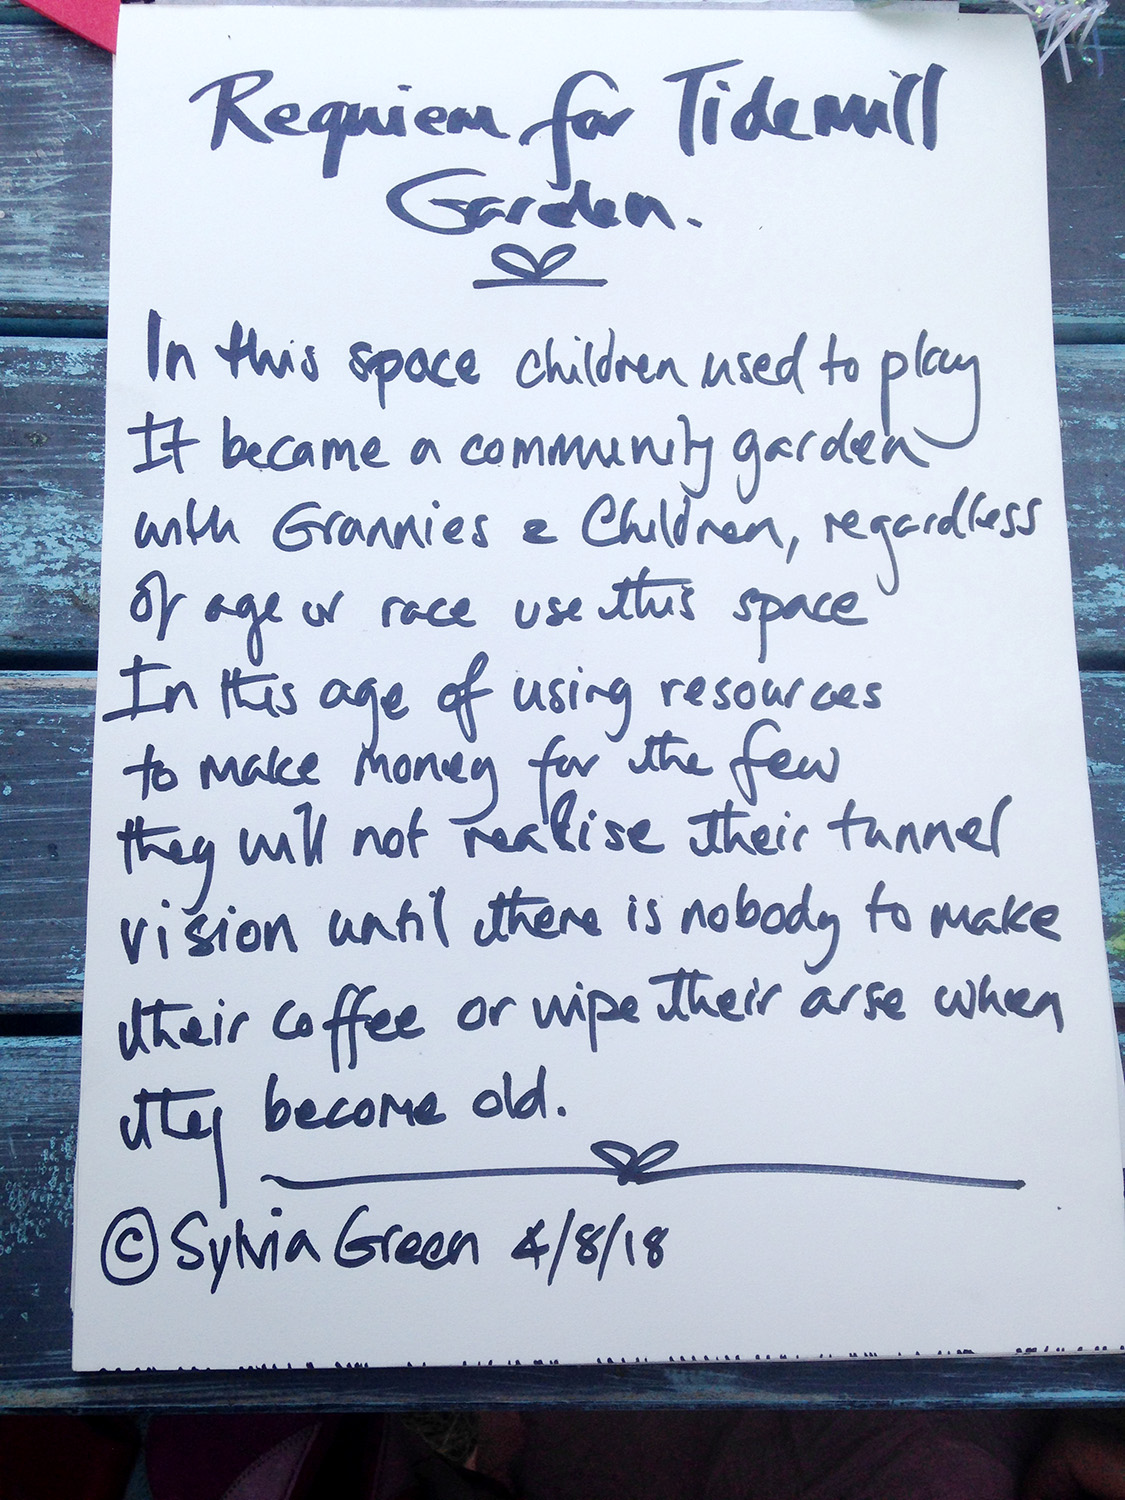 Requiem for Tidemill
Garden.
In this space children used to play
It became a community garden
with Grannies & Children, regardless
of age or race use this space
In this age of using resources
to make money for the few
they will not realise their tunnel
vision until there is nobody to make
their coffee or wipe their arse when
they become old.
© Sylvia Green 4/8/18